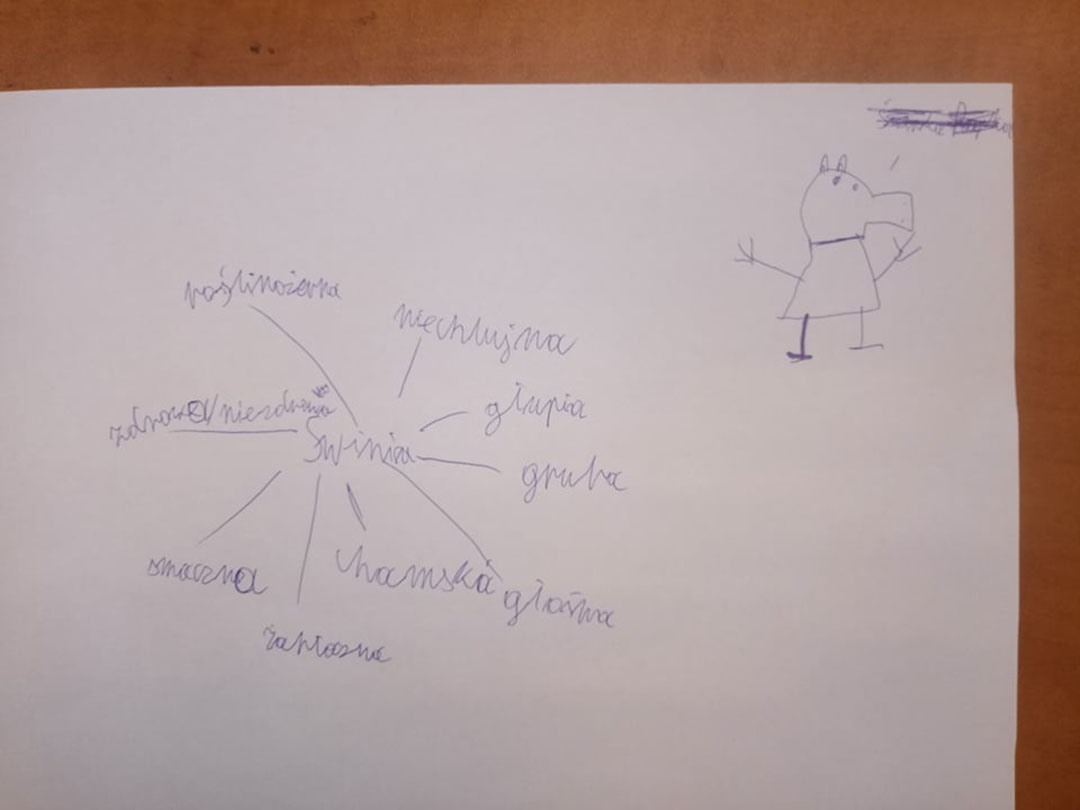 roślinożerna
niechlujna
głupia
zdrowa/niezdrowa
Świnia
gruba
smaczna
chamska
głośna
żarłoczna